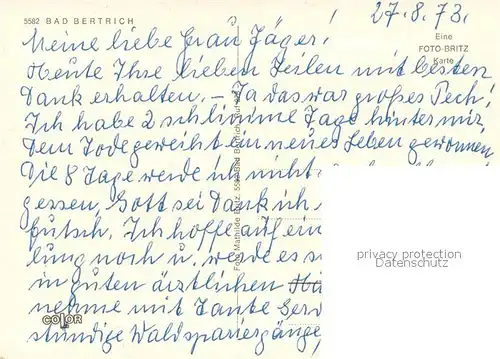 5582 BAD BERTRICH
27.8.73.
Eine
FOTO-BRITZ
Karte
Meine liebe Frau Jäger!
Heute Ihre lieben Zeilen mit besten
Dank erhalten. – Ja das war großes Pech!
Ich habe 2 schlimme Tage hinter mir,
dem Tode geweiht ein neues Leben gewonnen
Die 8 Tage werde ich nicht
gessen, Gott sei Dank ich
futsch. Ich hoffe auf ein
lung noch u. werde es
in guten ärztlichen
nehme mit Tante
stündige Waldspaziergänge,
Foto Mathilde Britz, 5582 Bad Bertrich
privacy protection
Datenschutz
COLOR